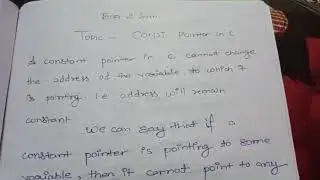 Topic - Const Pointer in C
A constant pointer in C cannot change
the address of the variable to which it
is pointing. i.e address will remain
constant
We can say that if a
constant pointer is pointing to some
variable, then it cannot point to any